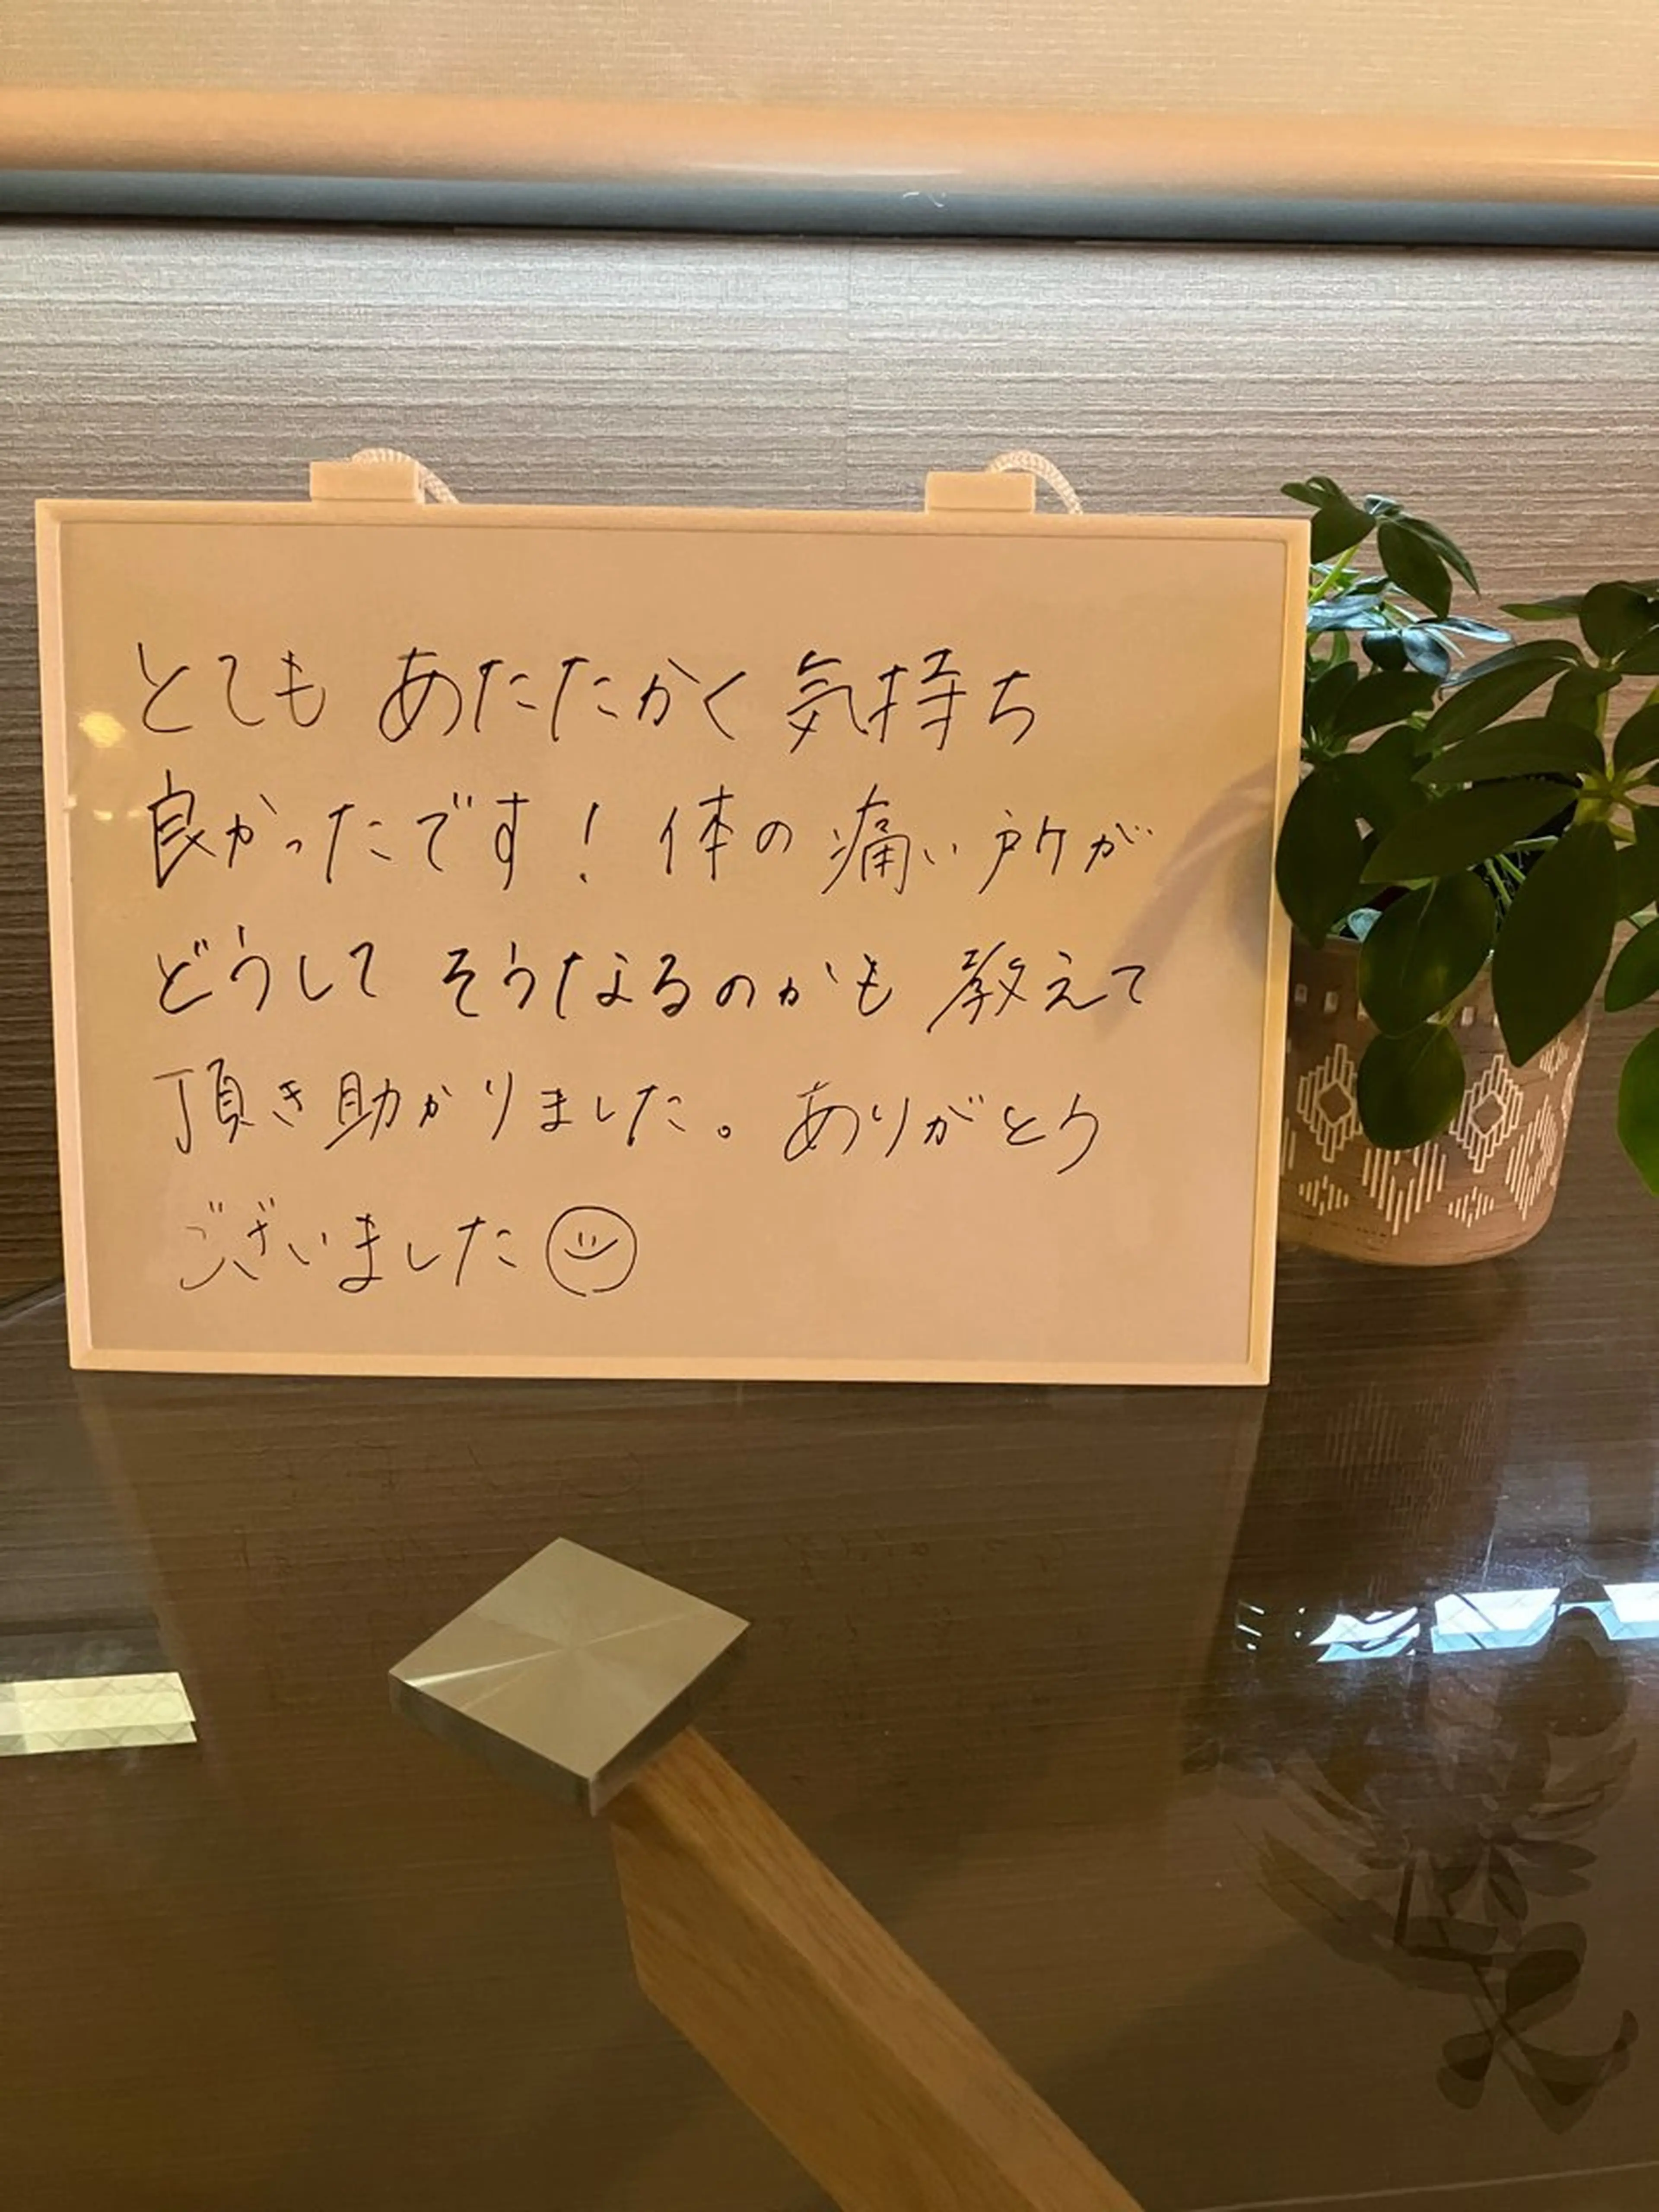 とても あたたかく 気持ち
良かったです! 体の 痛い所が
どうして そうなるのかも 教えて
頂き助かりました。ありがとう
ございました☺